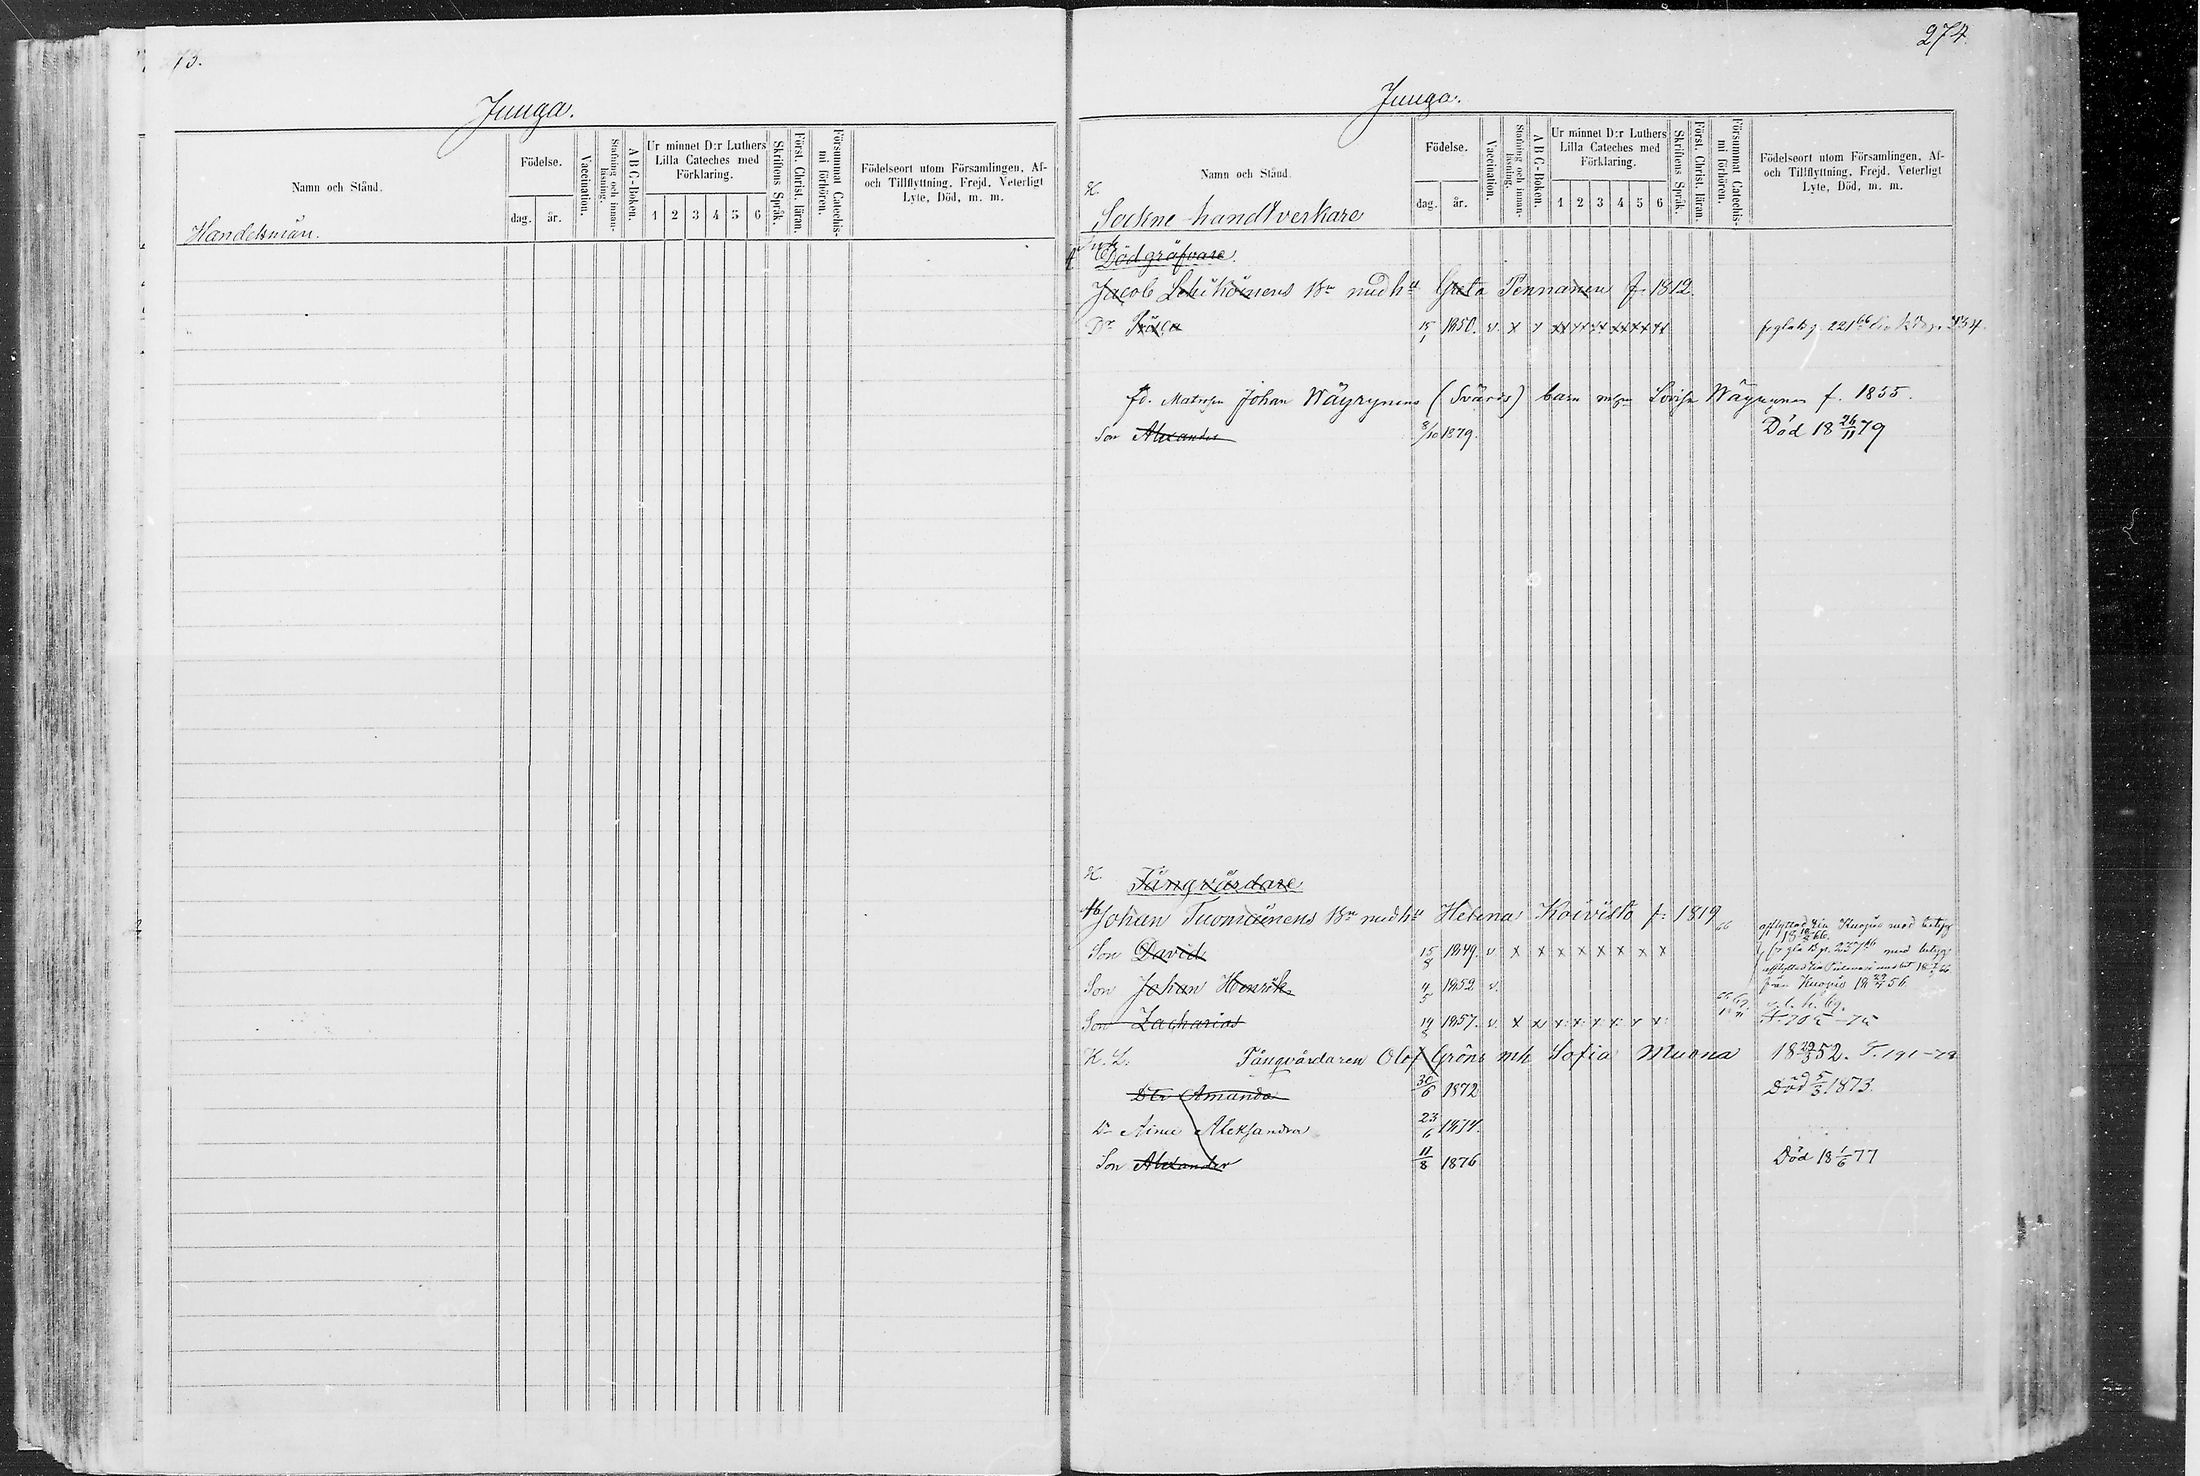 73.
Junga.
Namn och Stånd.
Födelse.
dag.
år.
Vaccination.
Stafning och innanläsning.
A B C-Boken.
Ur minnet D:r Luthers Lilla Cateches med Förklaring.
1 2 3 4 5 6
Skriftens Språk.
Först. Christ. läran.
Försummat Catechismi förhören.
Födelseort utom Församlingen, Af- och Tillflyttning, Frejd, Veterligt Lyte, Död, m. m.
Handelsmän.
274.
Junga.
Namn och Stånd.
Födelse.
dag.
år.
Vaccination.
Stafning och innanläsning.
A B C-Boken.
Ur minnet D:r Luthers Lilla Cateches med Förklaring.
1 2 3 4 5 6
Skriftens Språk.
Först. Christ. läran.
Försummat Catechismi förhören.
Födelseort utom Församlingen, Af- och Tillflyttning, Frejd, Veterligt Lyte, Död, m. m.
H.
Sockne handtverkare
Dödgräfvare.
Jacob Lehikoinens Bn med hu Greta Pennanen f. 1812.
Dr 15/1 1850. v. x
fd. Johan Wäyrynens (Svärds) barn Lovisa Wäyrynen f. 1855.
Son Alexander 8/10 1879. Död 18 26/11 79
H.
Fångvårdare
Johan Tuomainens Bn med hu Helena Koivisto f. 1819
Son David 15/8 1849. v x x x x x x x x
Son Johan Henrik 4/5 1852 v. från Kuopio
Son Zacharias 1857. v. x x x x x x x x
H. L. Fångvårdaren Olof Gröns mh Sofia Muona 18 52.
Dtr Amanda 30/6 1872 Död 5/3 1873.
Dr Aleksandra 23/6 1874.
Son Alexander 11/8 1876 Död 18 1/6 77